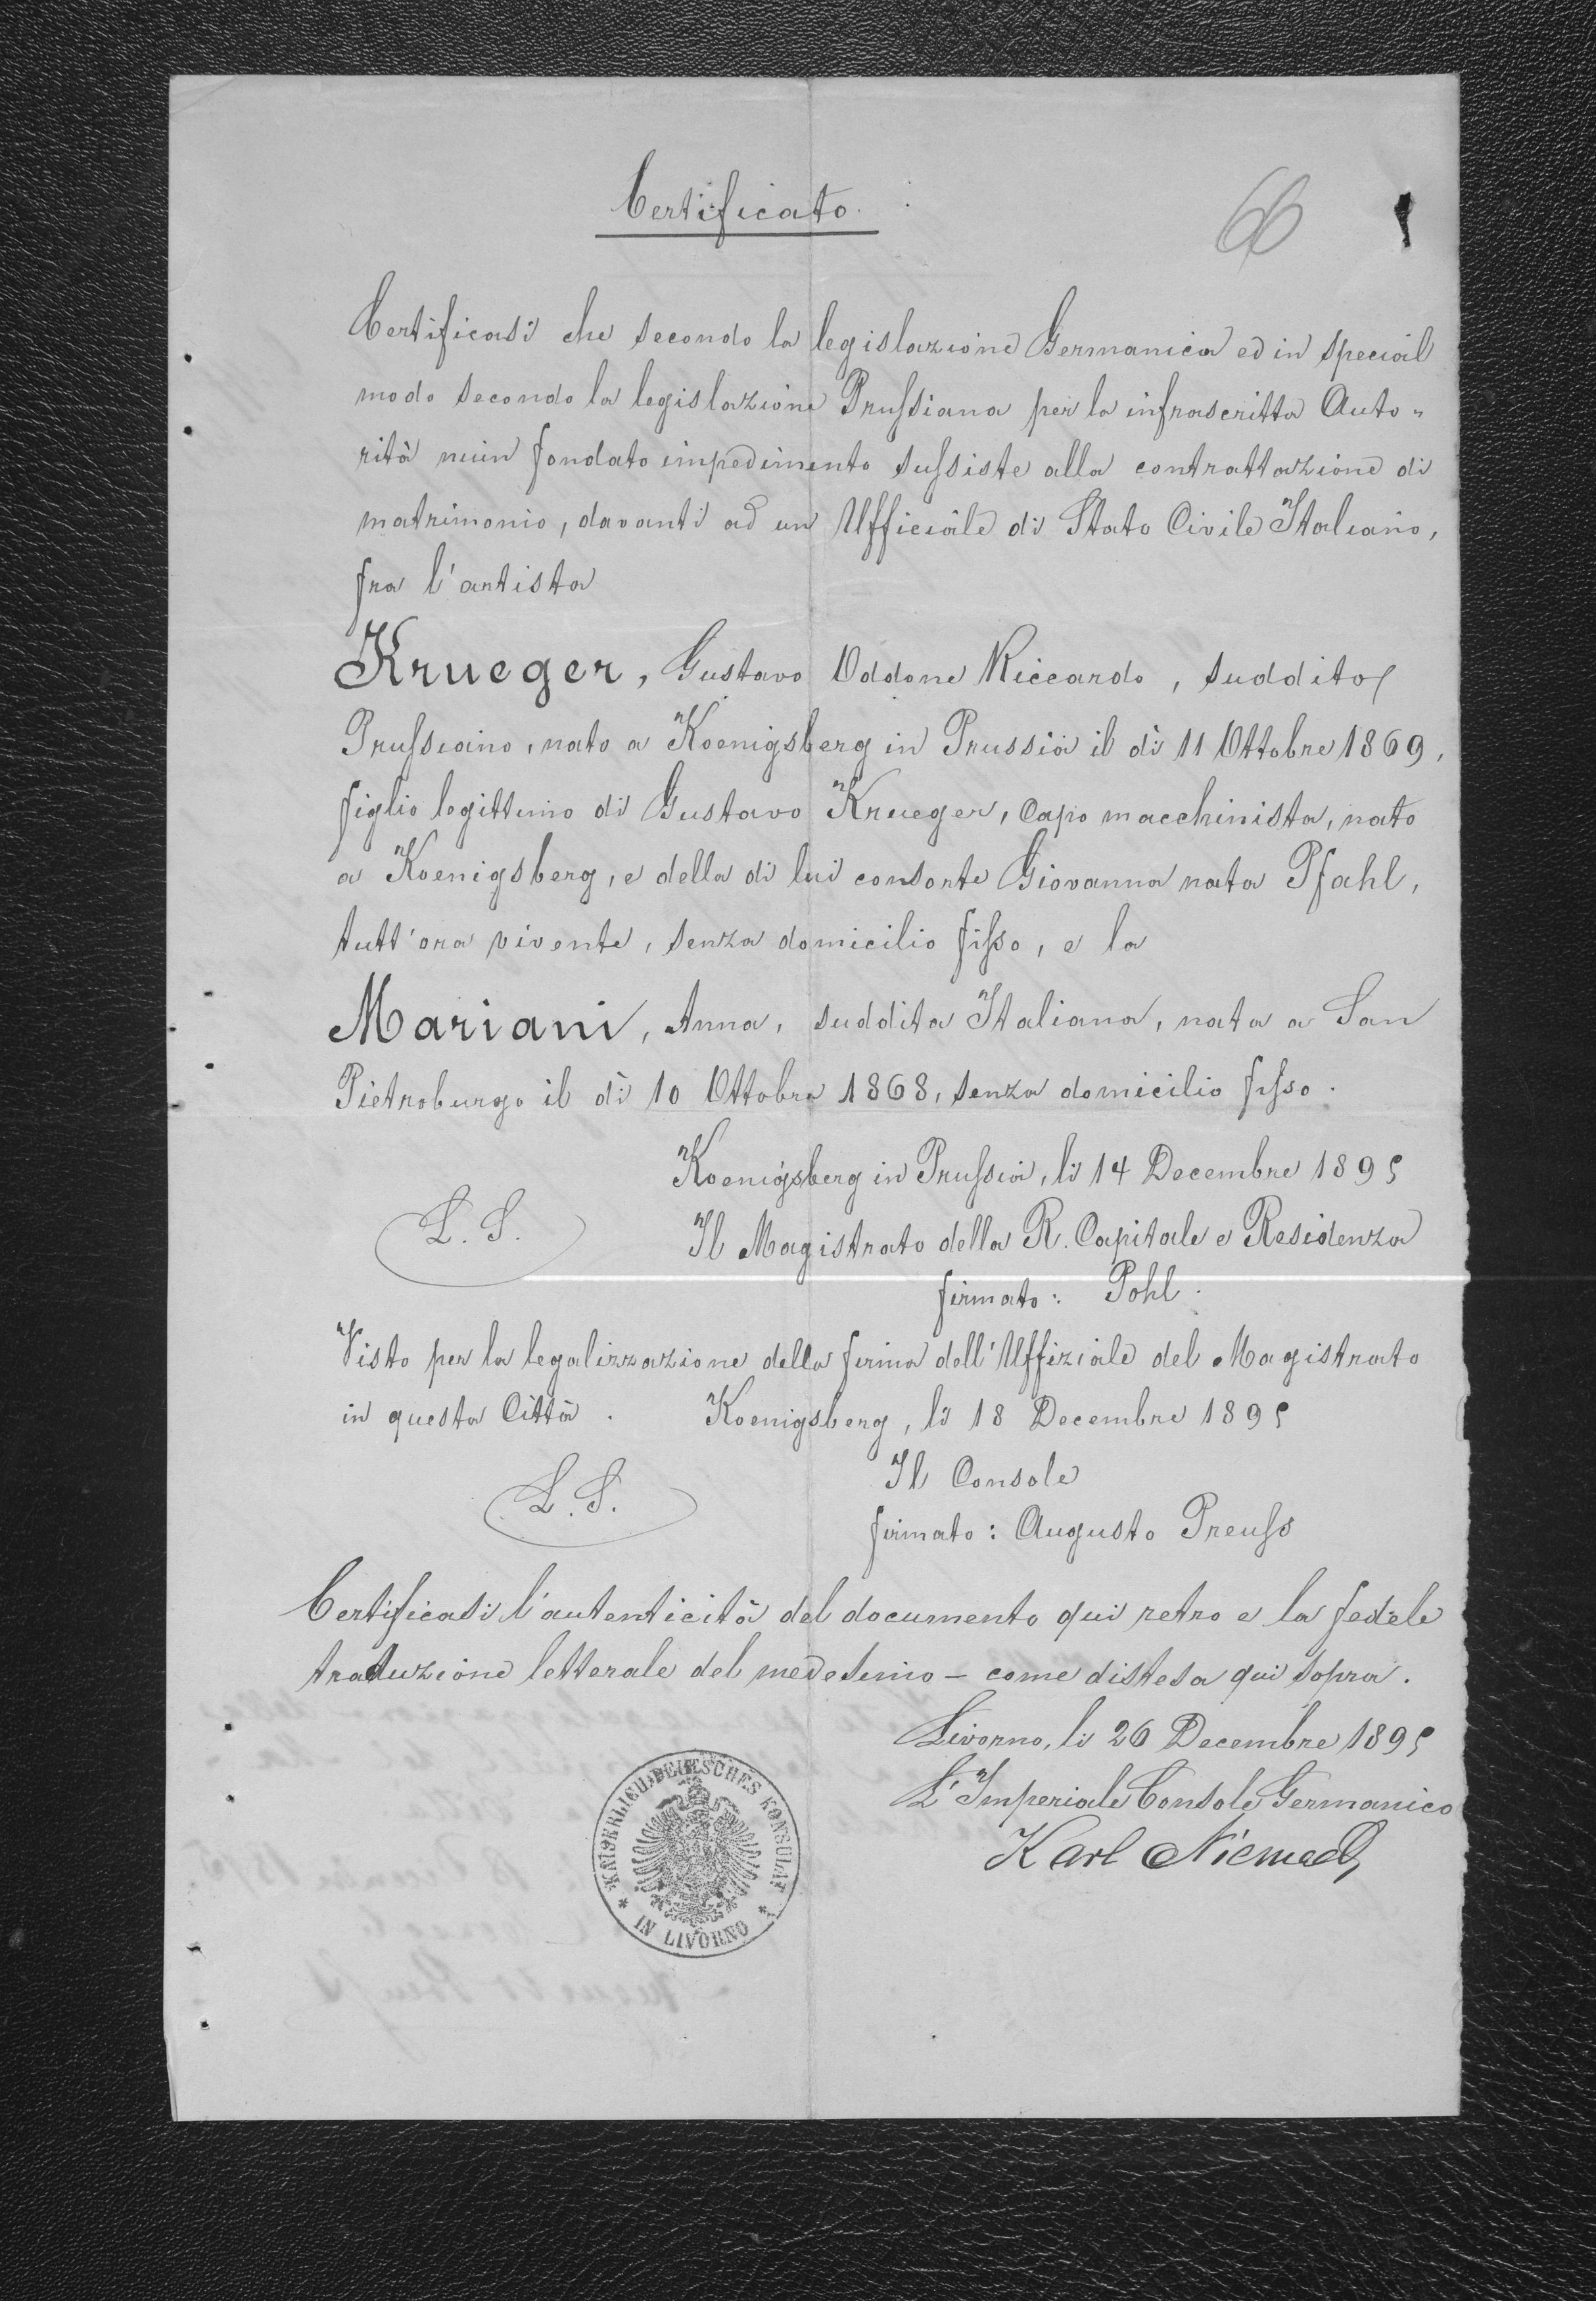 Certificato.
66
Certificasi che secondo la legislazione Germanica ed in special
modo secondo la legislazione Prussiana per la infrascritta Auto-
rità niun fondato impedimento sussiste alla contrattazione di
matrimonio, davanti ad un Ufficiale di Stato Civile Italiano,
fra l'artista
Krueger, Gustavo Oddone Riccardo, suddito
Prussiano, nato a Koenigsberg in Prussia il dì 11 Ottobre 1869,
figlio legittimo di Gustavo Krueger, Capo macchinista, nato
a Koenigsberg, e della di lui consorte Giovanna nata Pfahl,
tutt'ora vivente, senza domicilio fisso, e la
Mariani, Anna, suddita Italiana, nata a San
Pietroburgo il dì 10 Ottobre 1868, senza domicilio fisso.
Koenigsberg in Prussia, li 14 Decembre 1895
L. S.
Il Magistrato della R. Capitale e Residenza
firmato: Pohl.
Visto per la legalizzazione della firma dell'Uffiziale del Magistrato
in questa Città. Koenigsberg, li 18 Decembre 1895
Il Console
L. S.
firmato: Augusto Preuss
Certificasi l'autenticità del documento qui retro e la fedele
traduzione letterale del medesimo - come distesa qui sopra.
Livorno, li 26 Decembre 1895
L'Imperiale Console Germanico
Karl
KAISERLICH DEUTSCHES KONSULAT
* IN LIVORNO *